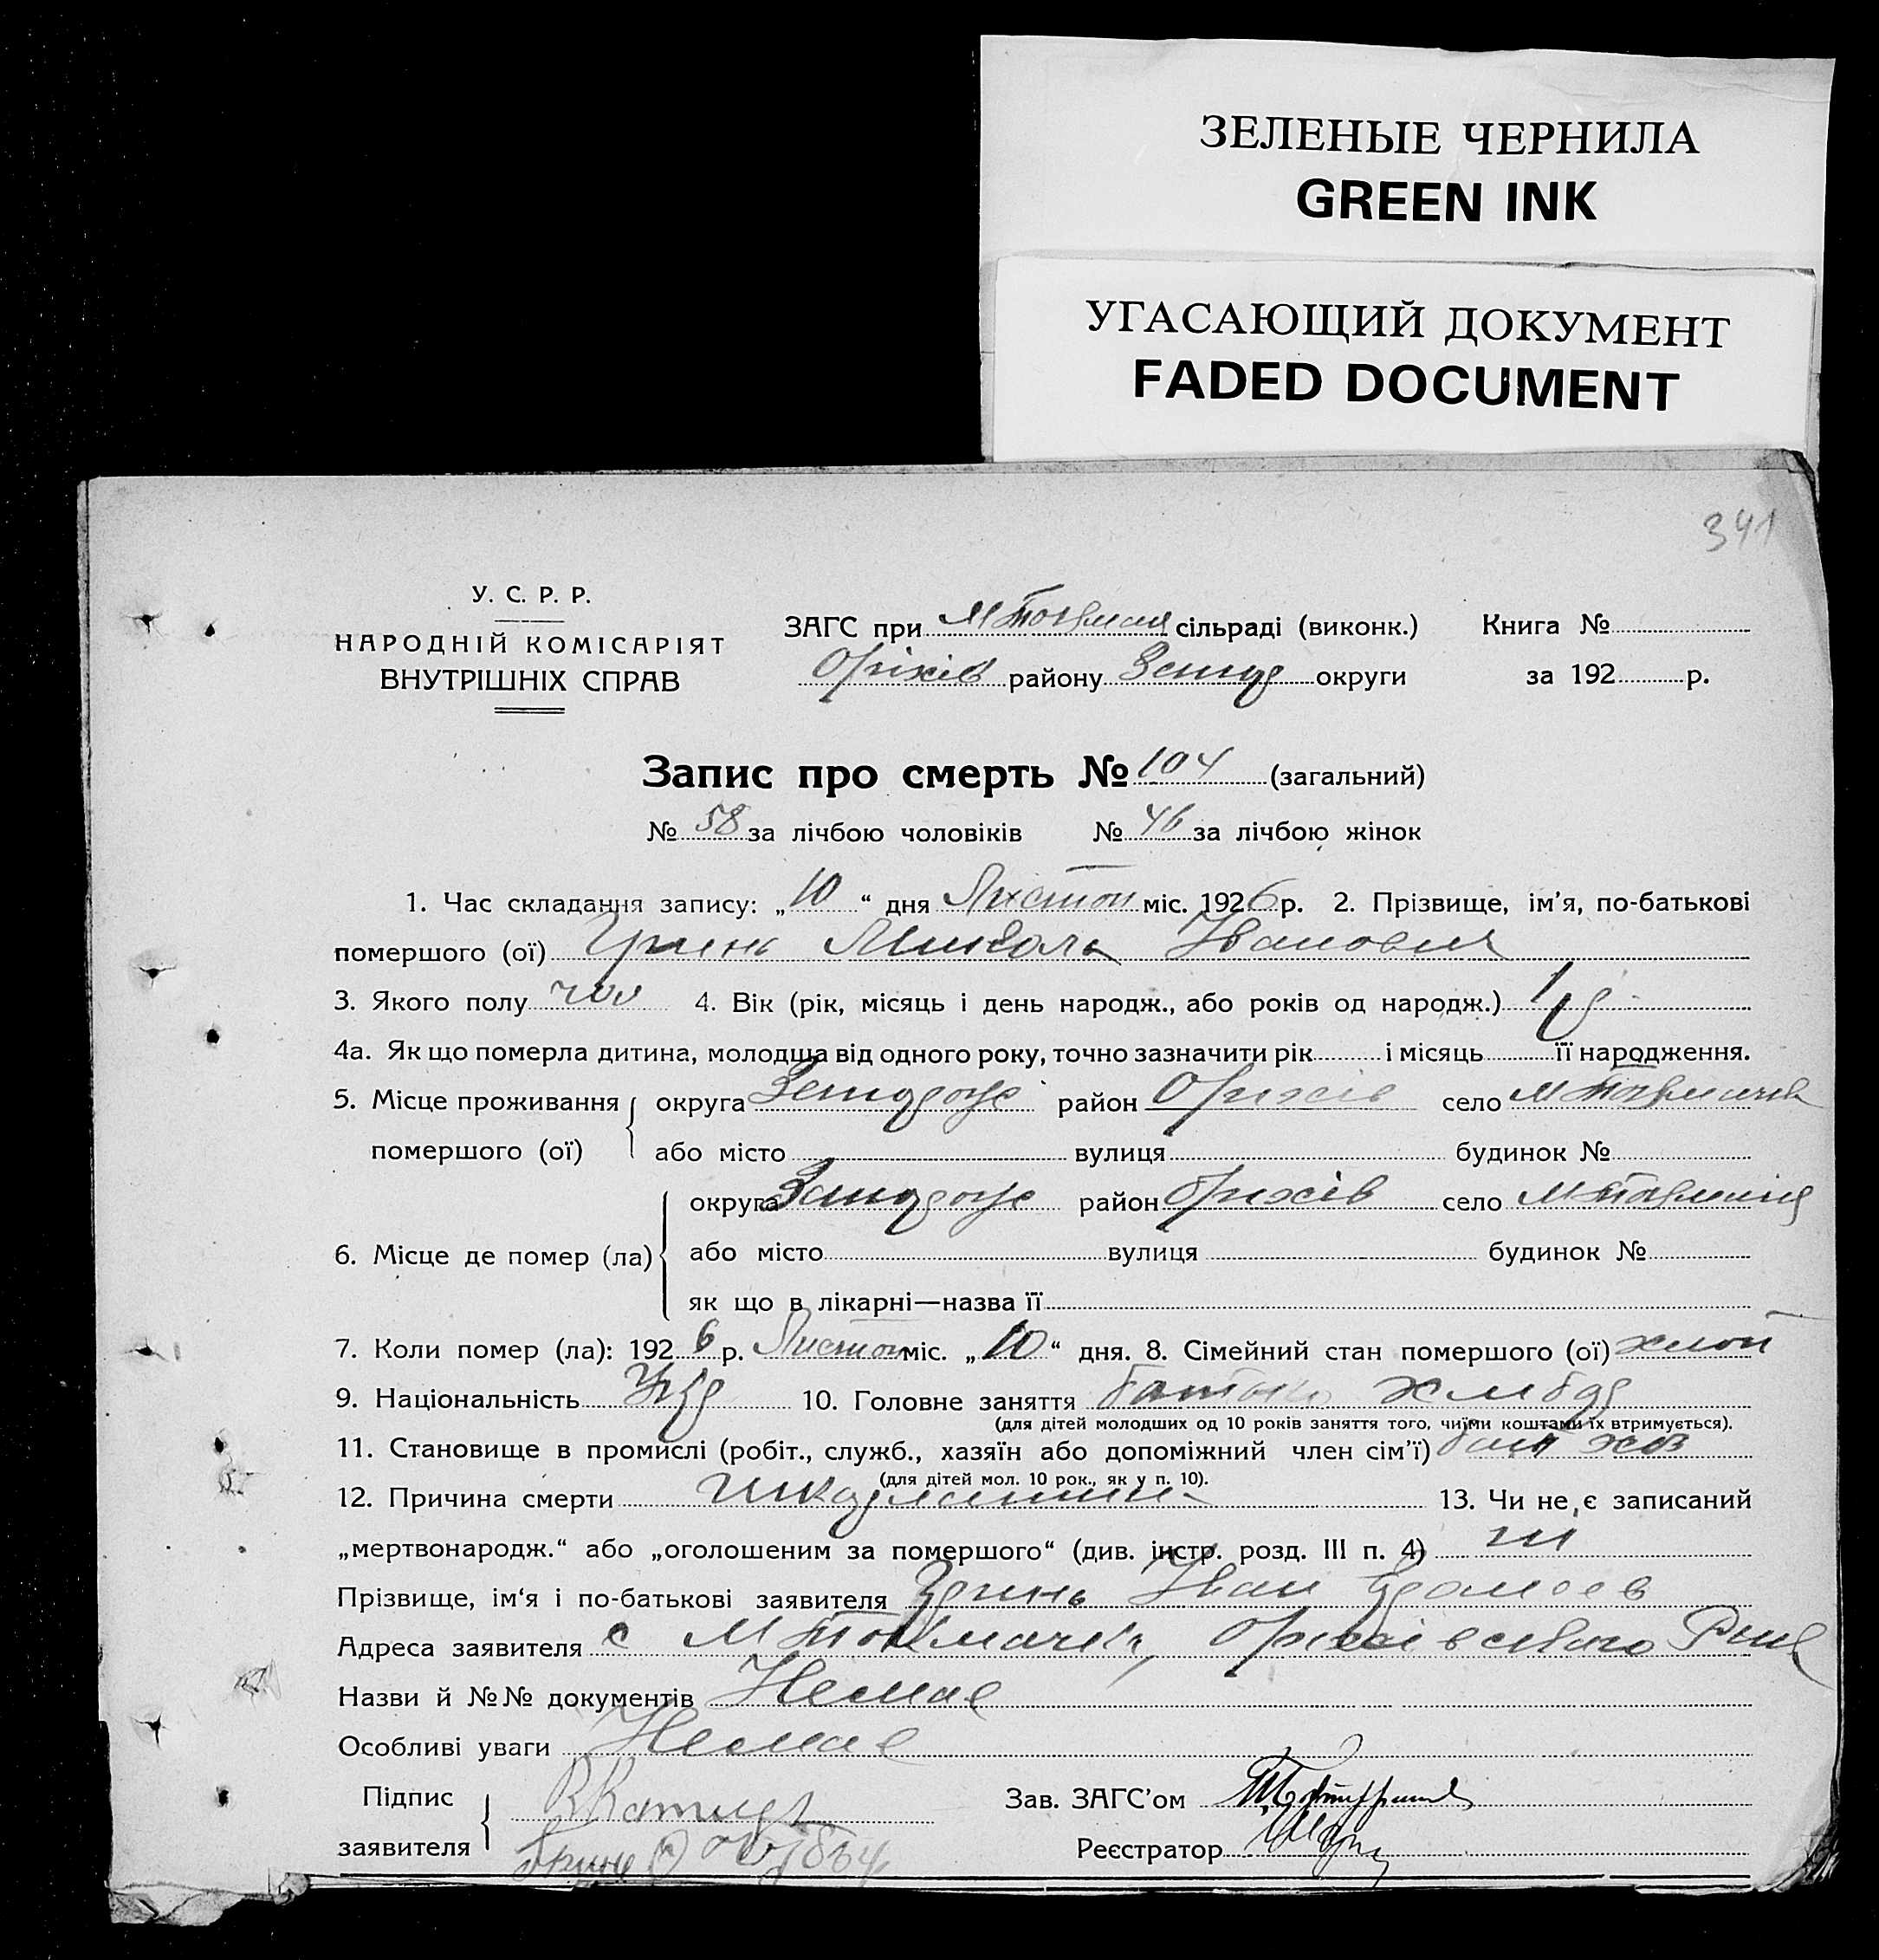 ЗЕЛЕНЫЕ ЧЕРНИЛА
GREEN INK
УГАСАЮЩИЙ ДОКУМЕНТ
FADED DOCUMENT
341
У. С. Р. Р.
НАРОДНІЙ КОМІСАРІЯТ
ВНУТРІШНІХ СПРАВ
ЗАГС при сільраді (виконк.) Книга №
Оріхів району округи за 192 р.
Запис про смерть № 104 (загальний)
№ 58 за лічбою чоловіків № 46 за лічбою жінок
1. Час складання запису: „10“ дня Листоп міс. 1926 р. 2. Прізвище, ім'я, по-батькові
помершого (ої) Гринь Микола Іванович
3. Якого полу чол 4. Вік (рік, місяць і день народж., або років од народж.) 1 р
4а. Як що померла дитина, молодша від одного року, точно зазначити рік і місяць її народження.
5. Місце проживання округа район Оріхів село М Токмачк
помершого (ої) або місто вулиця будинок №
округа район Оріхів село
6. Місце де помер (ла) або місто вулиця будинок №
як що в лікарні—назва її
7. Коли помер (ла): 1926 р. Листоп міс. „10“ дня. 8. Сімейний стан помершого (ої) хлоп
9. Національність Укр 10. Головне заняття батько хлібор
(для дітей молодших од 10 років заняття того, чиїми коштами їх втримується).
11. Становище в промислі (робіт., служб., хазяїн або допоміжний член сім'ї) бат хаз
(для дітей мол. 10 рок., як у п. 10).
12. Причина смерти 13. Чи не є записаний
„мертвонародж.“ або „оголошеним за помершого“ (див. інстр. розд. III п. 4) ні
Прізвище, ім'я і по-батькові заявителя Гринь Іван
Адреса заявителя с М Токмачк, Оріхівського Р-ну
Назви й №№ документів Немає
Особливі уваги Немає
Підпис Зав. ЗАГС'ом
заявителя Реєстратор